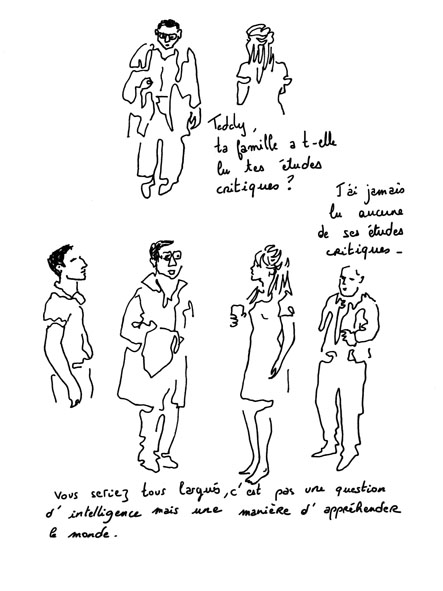 Teddy,
ta famille a t-elle
lu tes études
critiques ?
J'ai jamais
lu aucune
de ses études
critiques -
Vous seriez tous largués, c'est pas une question
d'intelligence mais une manière d'appréhender
le monde.